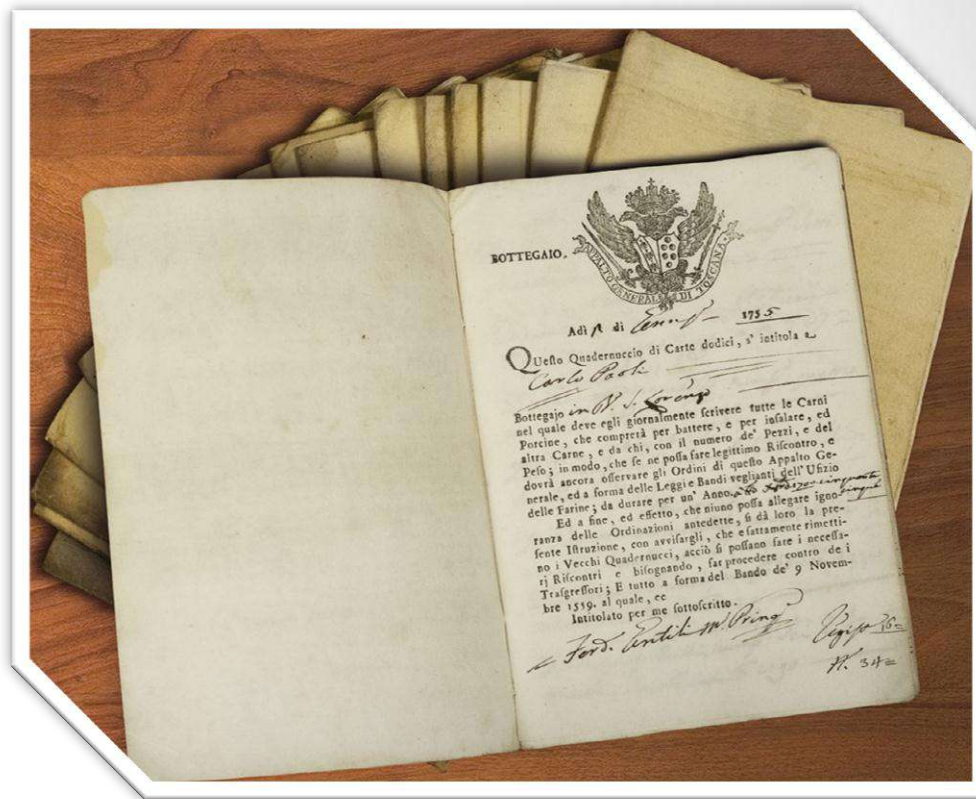 BOTTEGAIO.
APPALTO GENERALE DI TOSCANA
Adì di 1755
QUeſto Quadernuccio di Carte dodici, s' intitola a
Carlo Paoli
Bottegajo in
nel quale deve egli giornalmente ſcrivere tutte le Carni
Porcine, che comprerà per battere, e per inſalare, ed
altra Carne, e da chi, con il numero de' Pezzi, e del
Peſo; in modo, che ſe ne poſſa fare legittimo Riſcontro, e
dovrà ancora oſſervare gli Ordini di queſto Appalto Ge-
nerale, ed a forma delle Leggi e Bandi veglianti dell' Ufizio
delle Farine; da durare per un' Anno. cinquanta
cinque
Ed a fine, ed effetto, che niuno poſſa allegare igno-
ranza delle Ordinazioni antedette, ſi dà loro la pre-
ſente Iſtruzione, con avviſargli, che eſattamente rimetti-
no i Vecchi Quadernucci, acciò ſi poſſano fare i neceſſa-
rj Riſcontri e biſognando, far procedere contro de i
Traſgreſſori; E tutto a forma del Bando de' 9 Novem-
bre 1559. al quale, ec
Intitolato per me ſottoſcritto.
Ferd.
36
N. 34